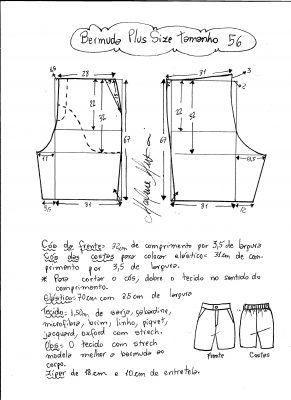 Bermuda Plus Size tamanho 56
28
22
32
67
11
3,5
31
31
3
2
22
32
67
13,5
31
12
Cós da frente: 72cm de comprimento por 3,5 de largura
Cós das costas para colocar elástico= 31cm de com-
primento por 3,5 de largura.
* Para cortar o cós, dobre o tecido no sentido do
comprimento.
Elástico: 70cm com 25cm de largura
Tecido: 1,50m de sarja, gabardine,
microfibra, brim, linho, piquet,
jacquard, oxford com strech.
Obs: O tecido com strech
modela melhor a bermuda ao
corpo.
Zíper de 18cm e 10cm de entretela.
Frente Costas